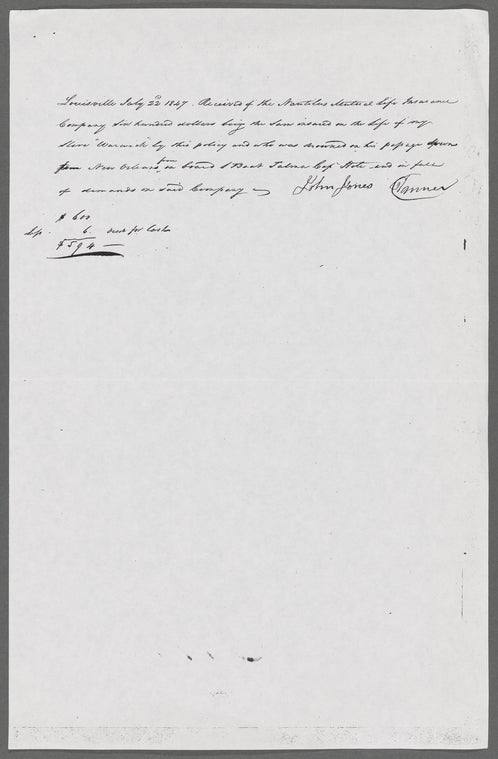 Louisville July 22d 1847. Received of the Nautilus Mutual Life Insurance
Company Six hundred dollars being the Sum insured on the life of my
Slave "Warwick" by this policy and who was drowned on his passage down
from New Orleans from on board S Boat Talma Capt Note and in full
of demands on Said Company John Jones Tanner
$ 600
6. disct for Cash
$ 594 —